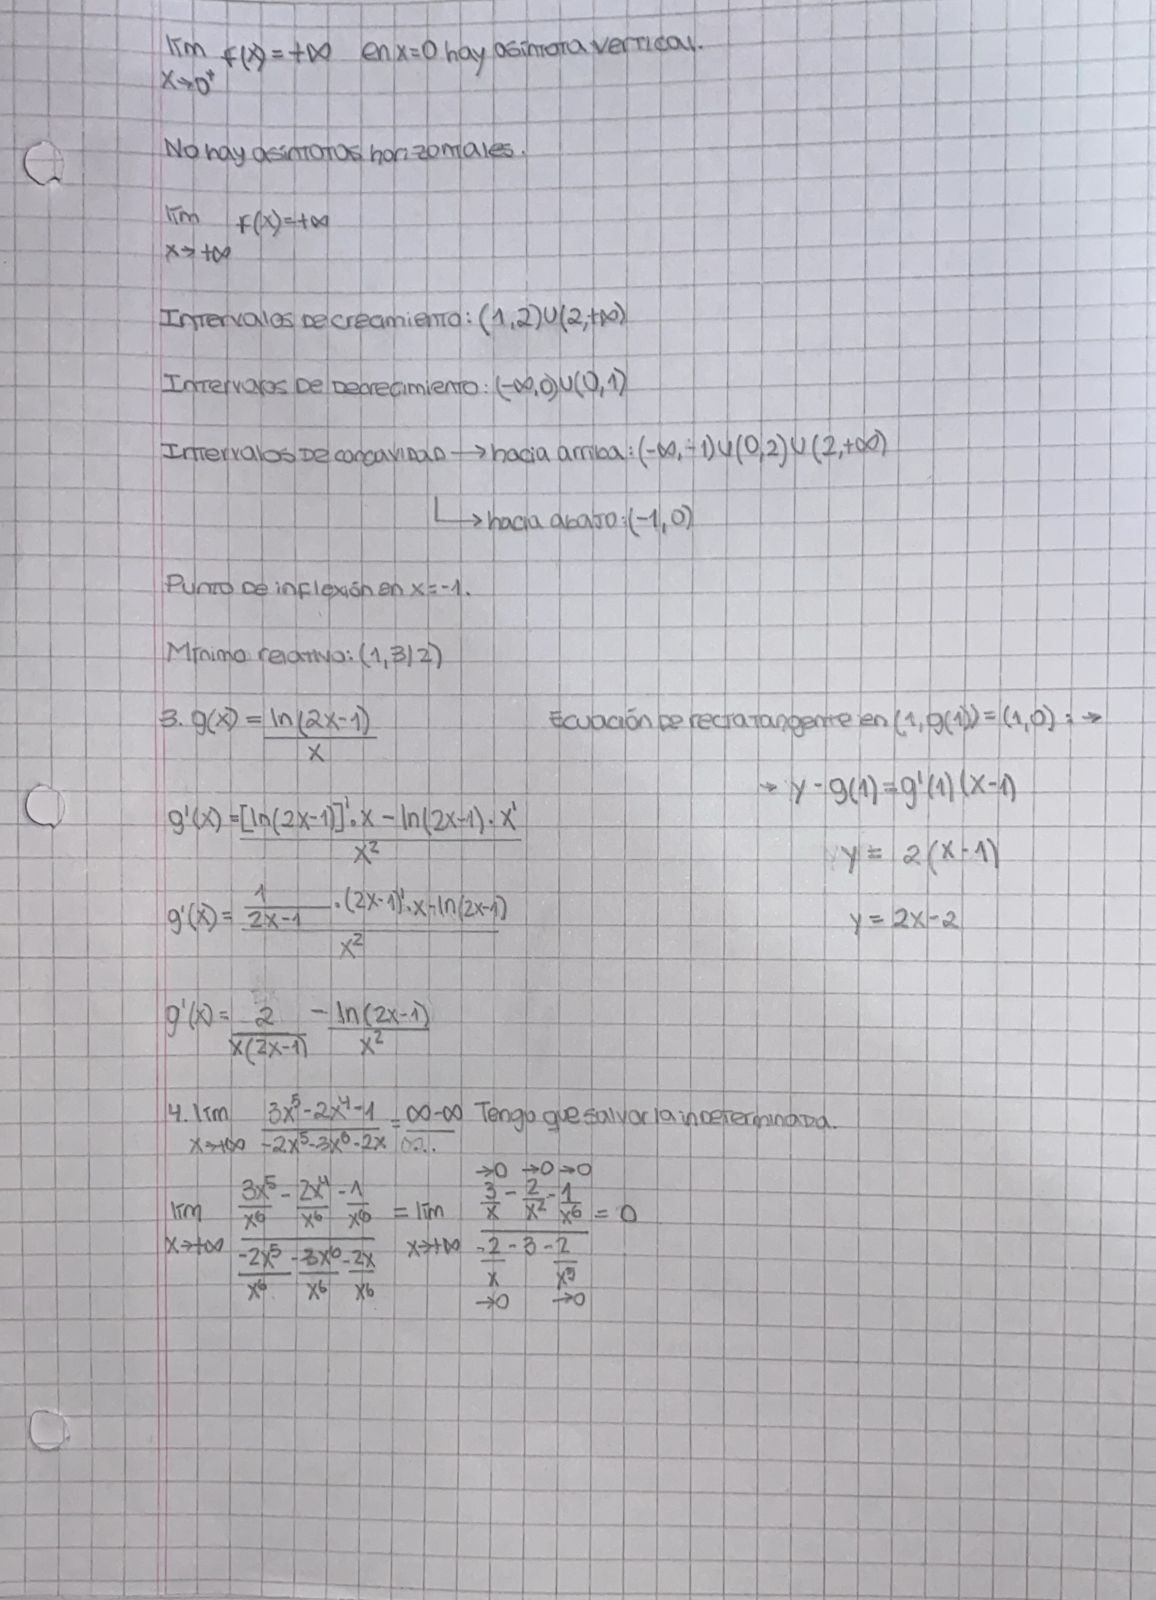 lím f(x)=+∞ en x=0 hay asíntota vertical.
x→0⁺
No hay asíntotas horizontales.
lím f(x)=+∞
x→+∞
Intervalos de creamiento: (1,2)∪(2,+∞)
Intervalos de decrecimiento: (-∞,0)∪(0,1)
Intervalos de concavidad → hacia arriba: (-∞,-1)∪(0,2)∪(2,+∞)
↳ hacia abajo: (-1,0)
Punto de inflexión en x=-1.
Mínimo relativo: (1,3/2)
3. g(x) = ln(2x-1) / x
g'(x) = [ln(2x-1)]'·x - ln(2x-1)·x' / x²
g'(x) = 1/(2x-1) ·(2x-1)'·x - ln(2x-1) / x²
g'(x) = 2 / x(2x-1) - ln(2x-1) / x²
Ecuación de recta tangente en (1,g(1)) = (1,0): →
→ y - g(1) = g'(1)(x-1)
y = 2(x-1)
y = 2x-2
4. lím x→+∞ (3x⁵-2x⁴-1) / (-2x⁵-3x⁶-2x) = ∞-∞ / Tengo que salvar la indeterminada.
→0 →0 →0
lím x→+∞ (3x⁵/x⁶ - 2x⁴/x⁶ - 1/x⁶) / (-2x⁵/x⁶ - 3x⁶/x⁶ - 2x/x⁶) = lím x→+∞ (3/x - 2/x² - 1/x⁶) / (-2/x - 3 - 2/x⁵) = 0
→0 →0